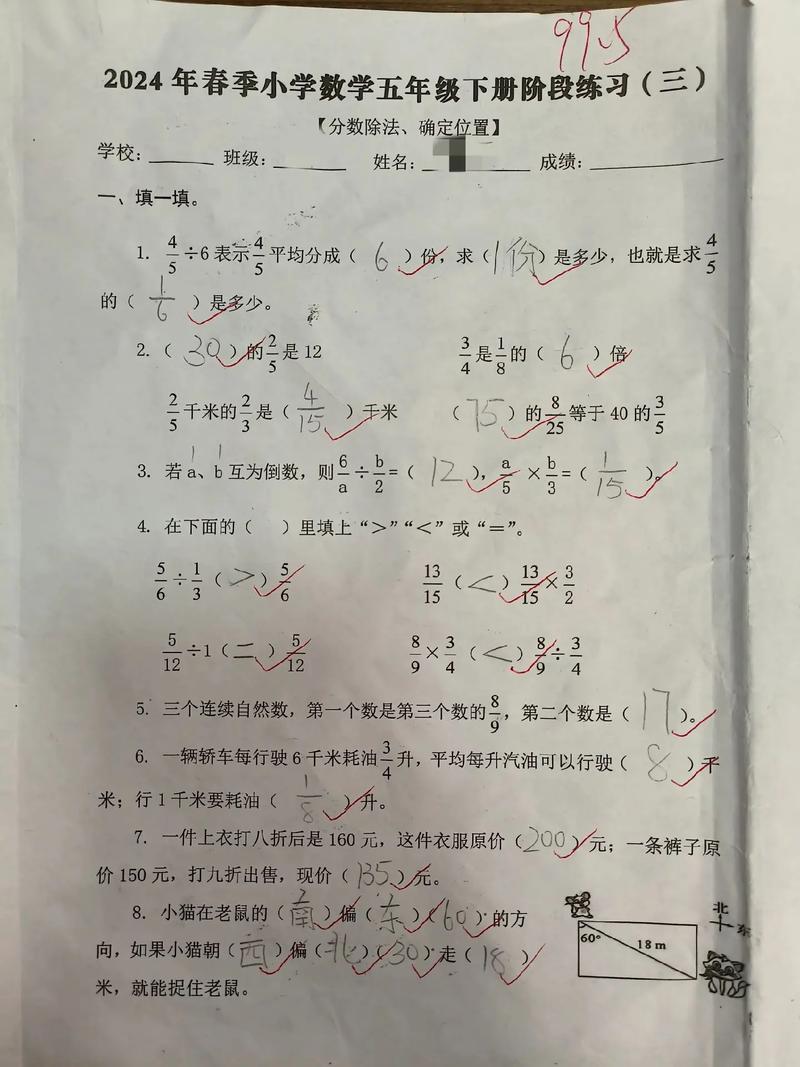 99.5
2024年春季小学数学五年级下册阶段练习（三）
【分数除法、确定位置】
学校：______ 班级：______ 姓名：______ 成绩：______
一、填一填。
1. 4/5÷6表示4/5平均分成（ 6 ）份，求（1份）是多少，也就是求4/5
的（ 1/6 ）是多少。
2.（ 30 ）的2/5是12 3/4是1/8的（ 6 ）倍
2/5千米的2/3是（ 4/15 ）千米 （ 75 ）的8/25等于40的3/5
3. 若a、b互为倒数，则6/a÷b/2=（ 12 ），a/5×b/3=（ 1/15 ）。
4. 在下面的（ ）里填上“>”“<”或“=”。
5/6÷1/3（ > ）5/6 13/15（ < ）13/15×3/2
5/12÷1（ = ）5/12 8/9×3/4（ < ）8/9÷3/4
5. 三个连续自然数，第一个数是第三个数的8/9，第二个数是（ 17 ）。
6. 一辆轿车每行驶6千米耗油3/4升，平均每升汽油可以行驶（ 8 ）千
米；行1千米要耗油（ 1/8 ）升。
7. 一件上衣打八折后是160元，这件衣服原价（200）元；一条裤子原
价150元，打九折出售，现价（135）元。
8. 小猫在老鼠的（南）偏（东）（60）°的方
向，如果小猫朝（西）偏（北）（30）°走（ 18 ）
米，就能捉住老鼠。
北
东
60°
18 m